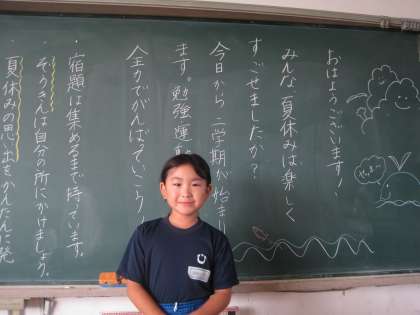 おはようございます、
みんな夏休みは楽しく
すごせましたか？
今日から二学期が始まり
ます。勉強運動
全力でがんばっていこう
・宿題は集めるまで持っています。
・ぞうきんは自分の所にかけましょう。
夏休みの思い出をかんたんに発